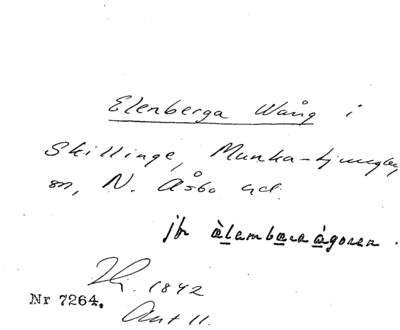 Elenberga Wång i
Skillinge, Munka-Ljungby
sn, N. Åsbo hd.
jfr àlembara ágorna.
1842
Nr 7264.
Akt 11.